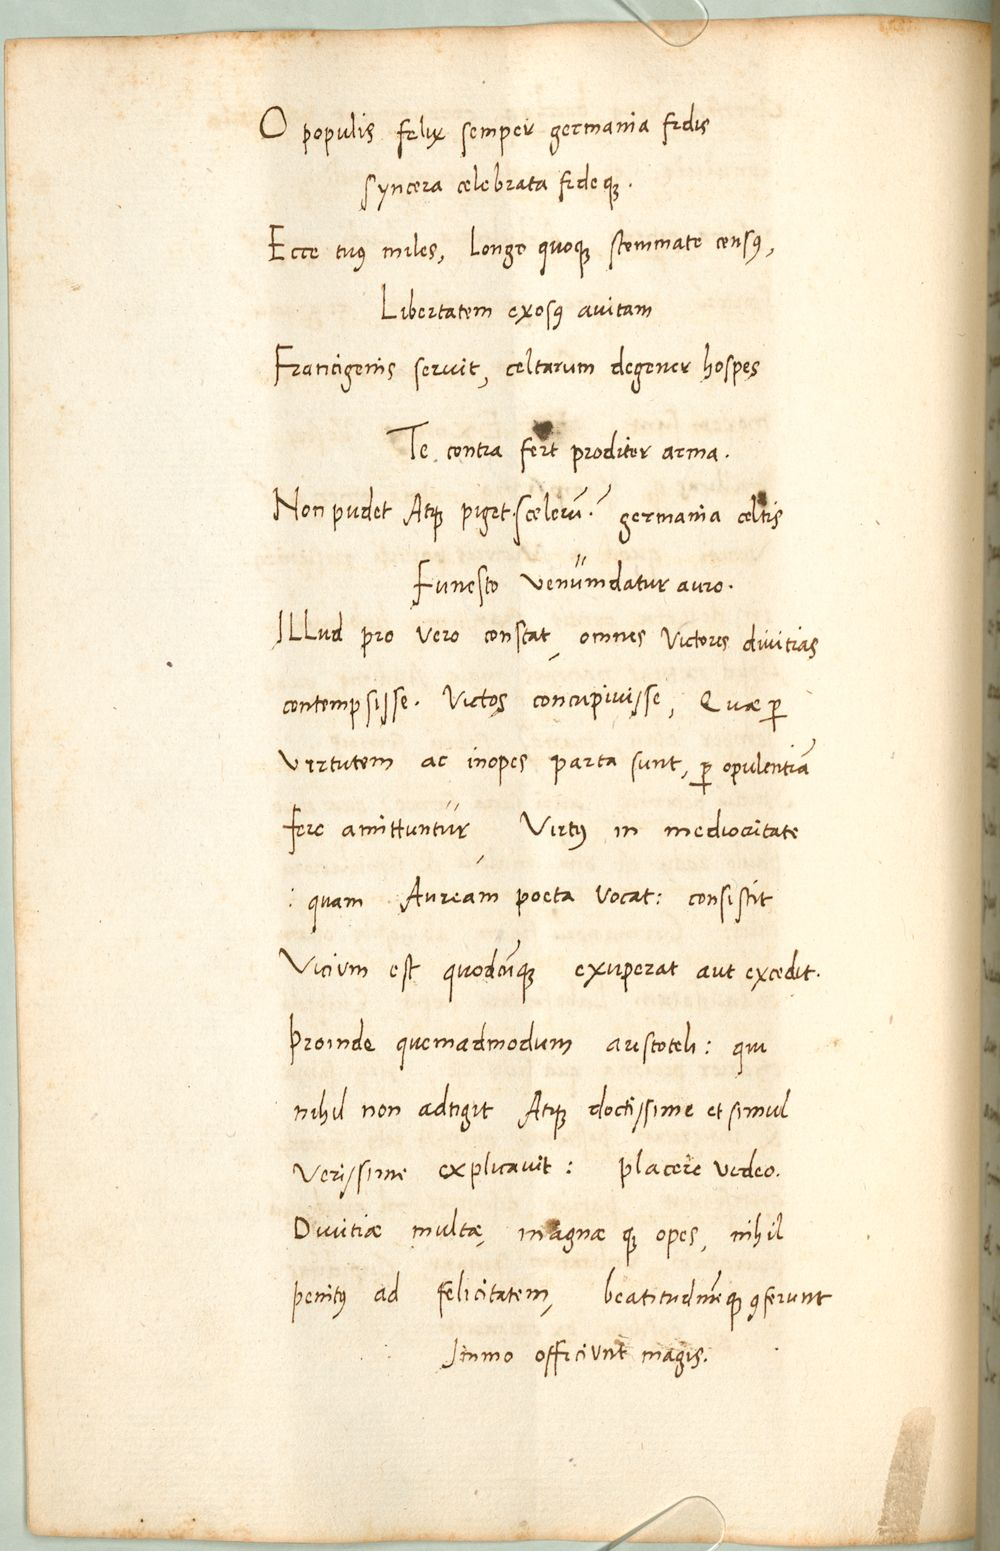 O populis felix semper germania fidis
syncera celebrata fideqꝫ.
Ecce tuꝰ miles, Longo quoqꝫ stemmate censꝰ,
Libertatem exosꝰ auitam
Francigenis seruit, celtarum degener hospes
Te contra fert proditor arma.
Non pudet Atqꝫ piget scelerū.? germania celtis
Funesto venumdatur auro.
ILLud pro vero constat, omnes Victores diuitias
contempsisse. Victos concupiuisse, Quæ ꝑ
virtutem ac inopes parta sunt, ꝑ opulentiā
fere amittuntur, Virtꝰ in mediocritate
: quam Auream poeta vocat: consistit
Vicium est quodcūqꝫ exuperat aut excedit.
Proinde quemadmodum aristoteli: qui
nihil non adtigit Atqꝫ doctissime et simul
verissime explicauit: placere video.
Diuitiæ multæ, magnæ qꝫ opes, nihil
penitꝰ ad felicitatem, beatitudinēqꝫ ꝯferunt
Immo officiunt magis.